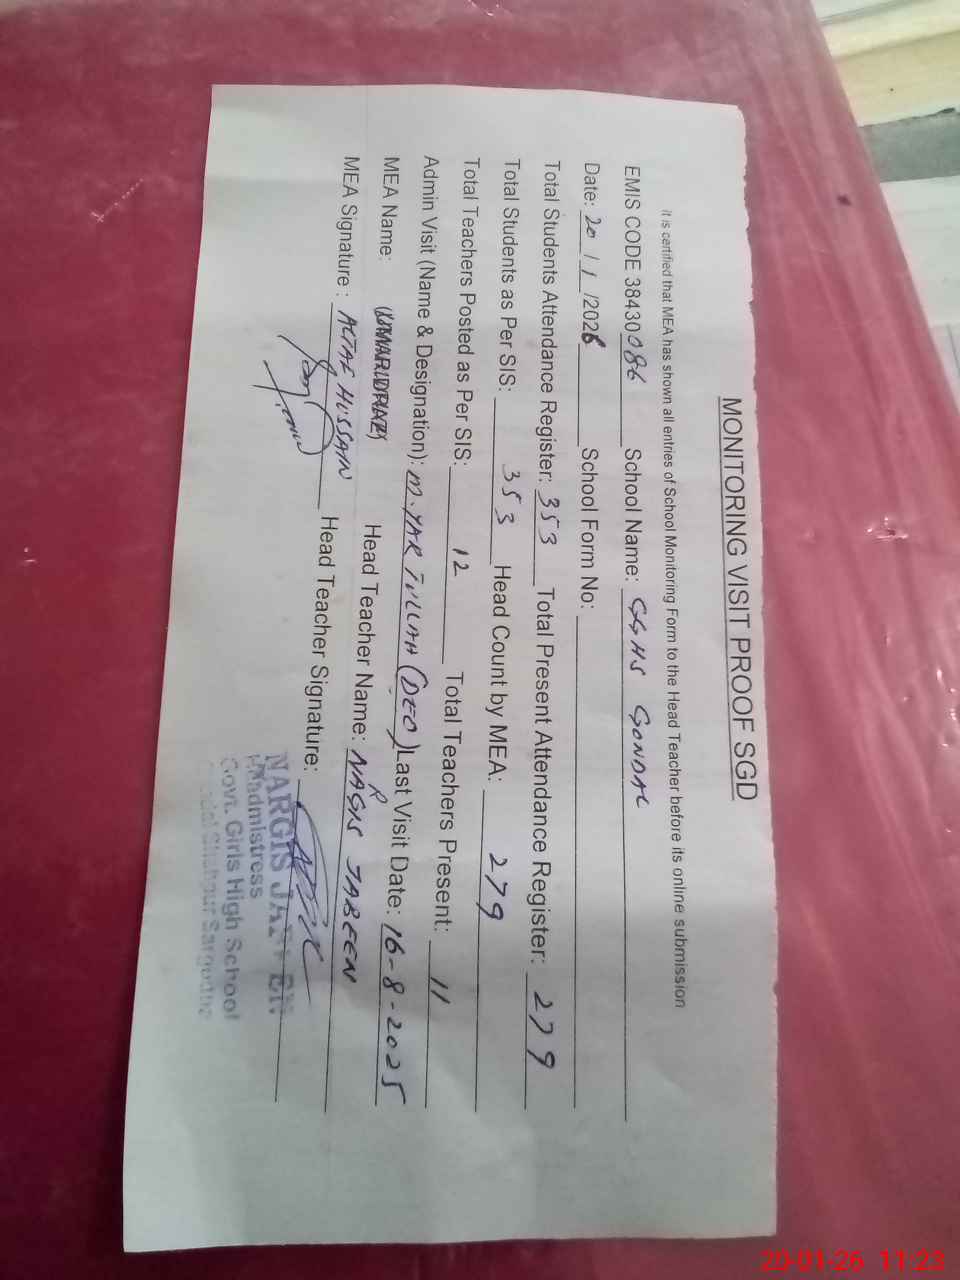 MONITORING VISIT PROOF SGD
it is certified that MEA has shown all entries of School Monitoring Form to the Head Teacher before its online submission
EMIS CODE 38430086 School Name: GGHS GONDAL
Date: 20/1/2026 School Form No:
Total Students Attendance Register: 353 Total Present Attendance Register: 279
Total Students as Per SIS: 353 Head Count by MEA: 279
Total Teachers Posted as Per SIS: 12 Total Teachers Present: 11
Admin Visit (Name & Designation): M. YAR TULLAH (DEO) Last Visit Date: 16-8-2025
MEA Name: ALTAF HUSSAIN Head Teacher Name: NARGIS JABEEN
MEA Signature: Head Teacher Signature:
NARGIS JABEEN
Headmistress
Govt. Girls High School
Sargodha
20-01-26 11:23